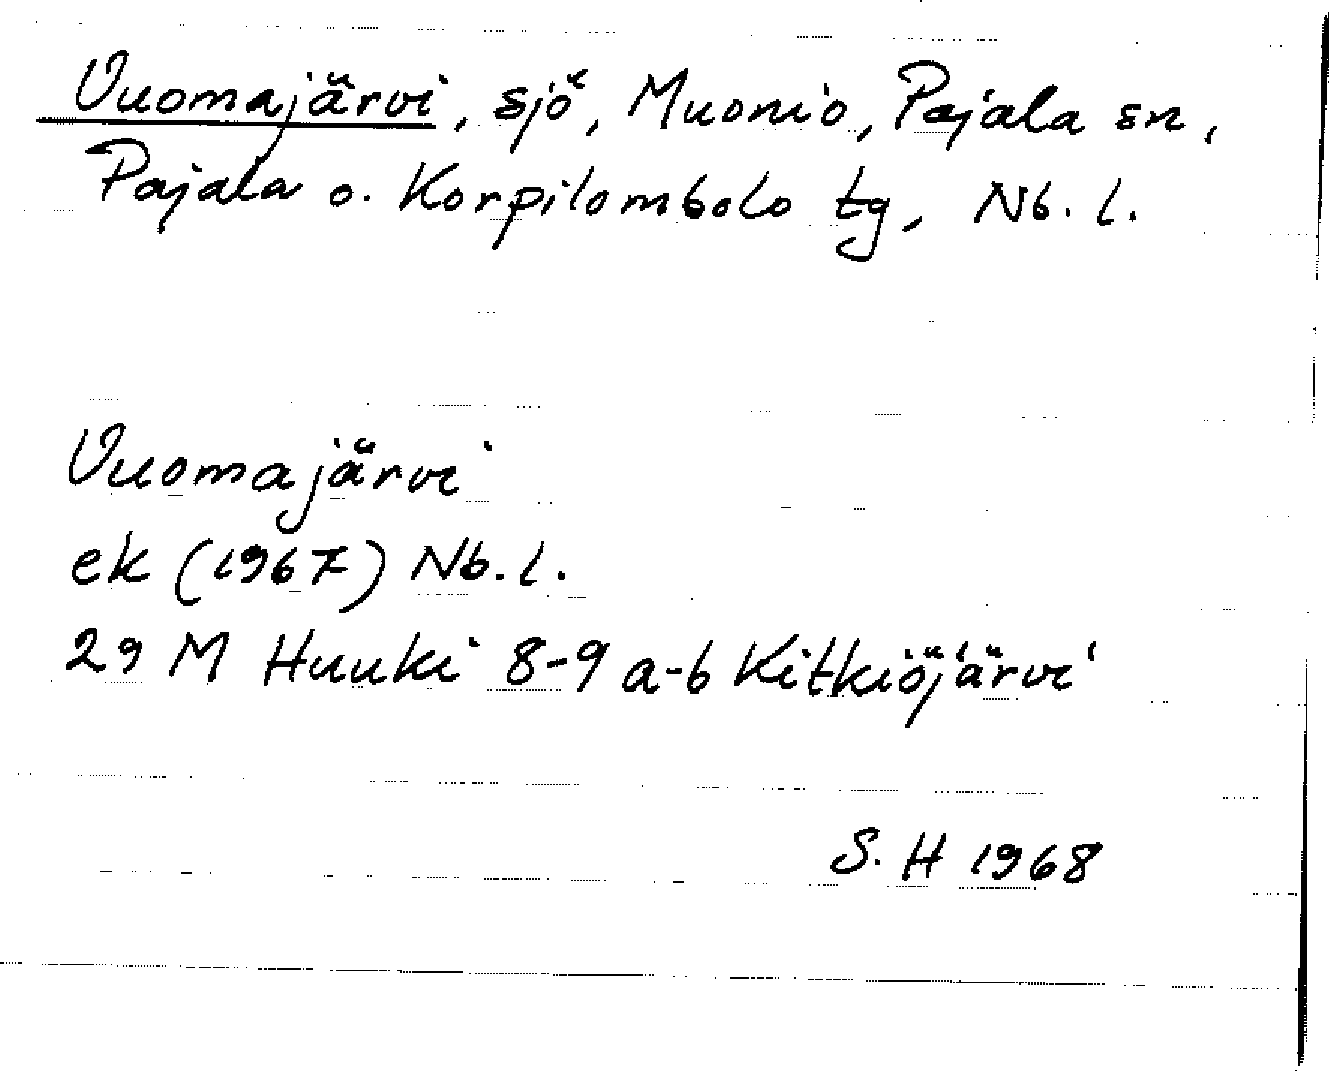 Vuomajärvi, sjö, Muonio, Pajala sn,
Pajala o. Korpilombolo tg, Nb. l.
Vuomajärvi
ek (1967) Nb. l.
29 M Huuki 8-9 a-b Kitkiöjärvi
S. H 1968